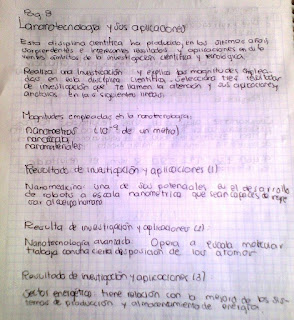 Pag 8
La nanotecnología y sus aplicaciones
Esta disciplina cientifica ha producido, en los ultimos años
sorprendentes e interesantes resultados y aplicaciones en
ambitos de la investigacion cientifica y tecnologica.
Realiza una investigación y explica las magnitudes
en esta disciplina cientifica. Selecciona tres resultados
de investigación que te llamen la atención y sus aplicaciones,
anotalos en las siguientes lineas.
Magnitudes empleadas en la nanotecnologia:
nanometros (10-9 de un metro)
nanoescala
nanomateriales
Resultado de investigación y aplicaciones (1)
Nanomedicina: una de sus potenciales es el desarrollo
de robots a escala nanometrica que sean capaces de
al cuerpo humano
Resulta de investigación y aplicaciones (2)
Nanotecnología avanzada. Opera a escala molecular
trabaja con cierta disposición de los atomos
Resultado de investigación y aplicaciones (3)
Sector energético: tiene relación con la mejora de los sis-
temas de producción y almacenamiento de energia